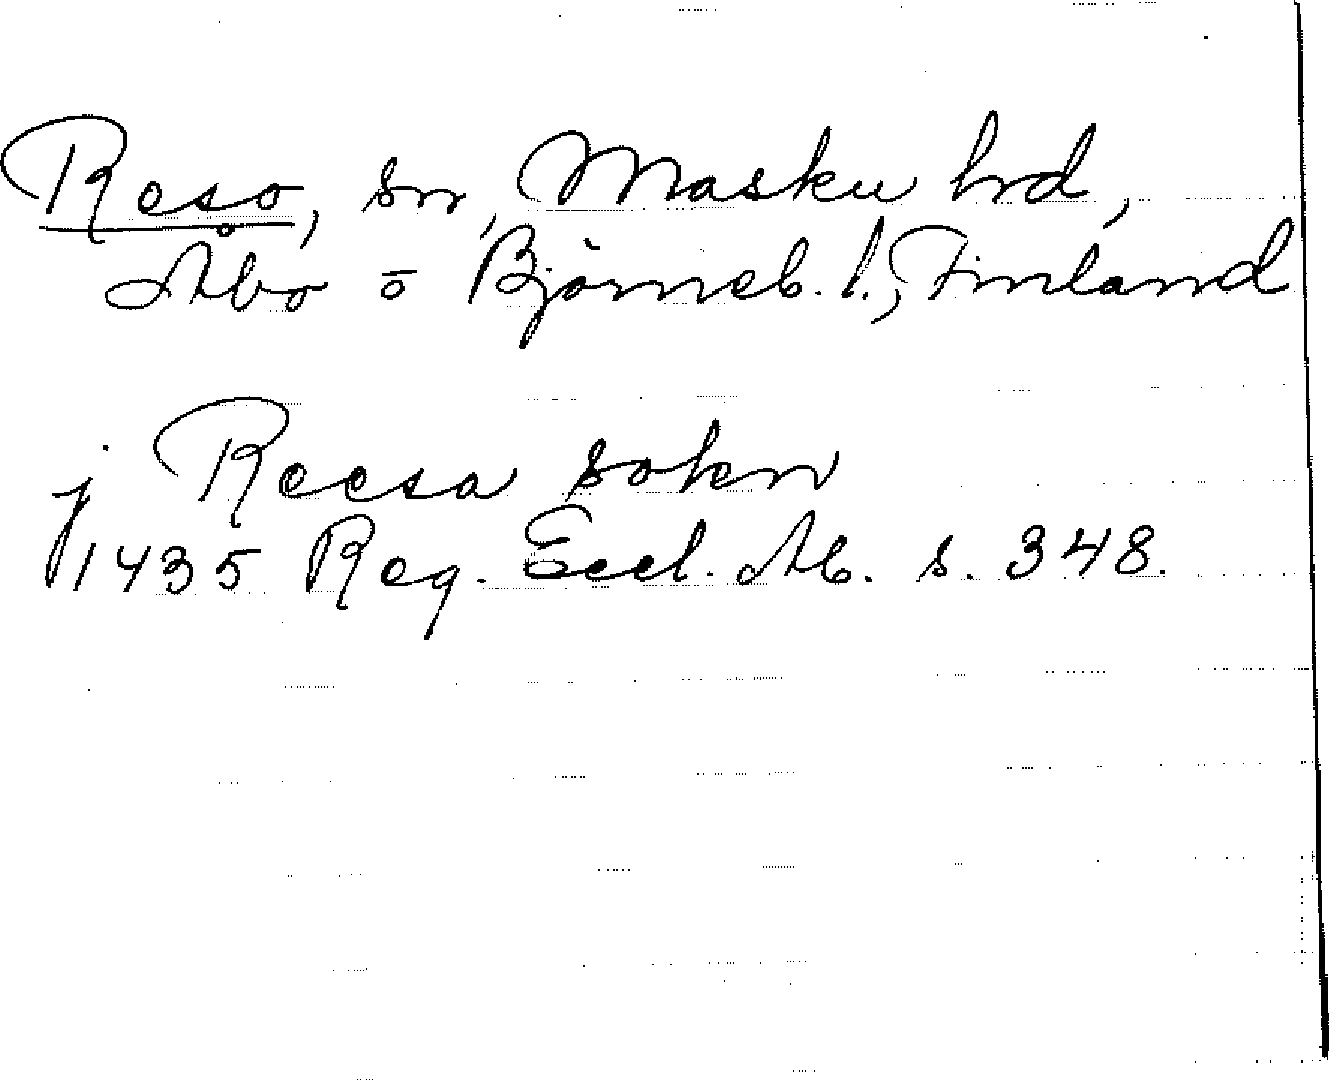 Reso, sn, Masku hrd,
Åbo o Bjørneb. l., Finland
j Reesa sokn
1435 Reg. Eccl. Ab. s. 348.